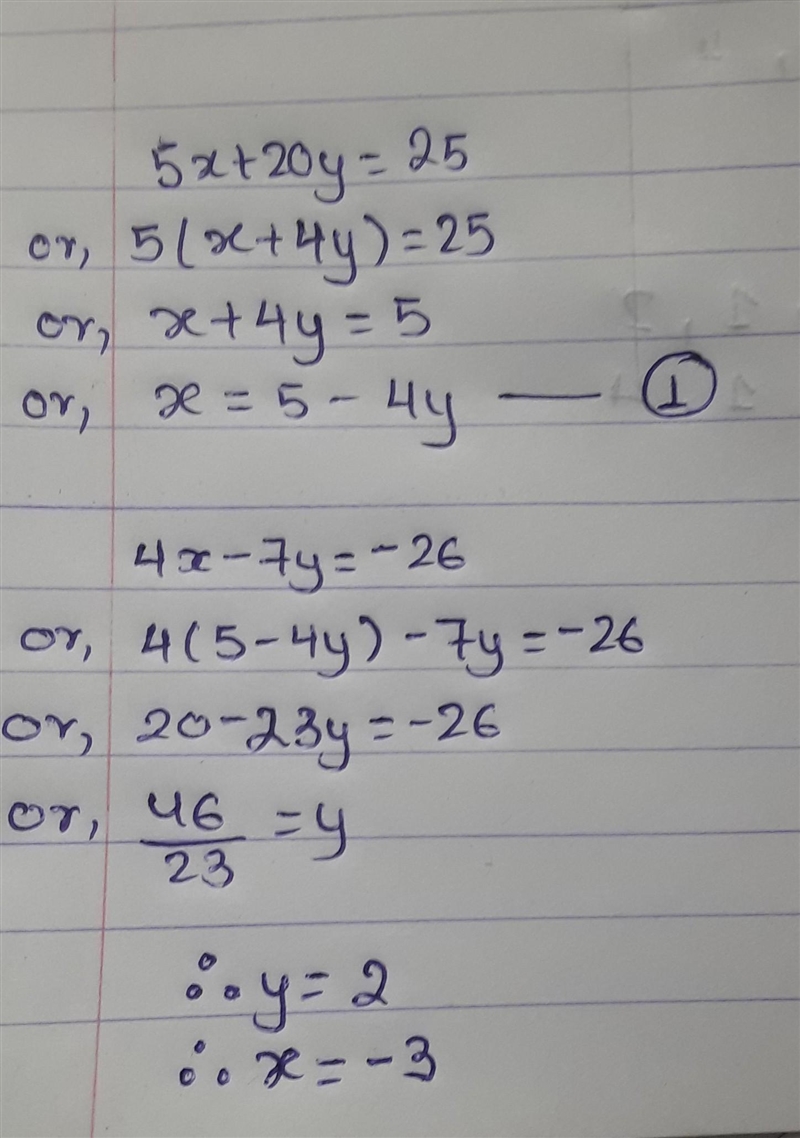 5x+20y=25
or, 5(x+4y)=25
or, x+4y=5
or, x=5-4y — ①
4x-7y=-26
or, 4(5-4y)-7y=-26
or, 20-23y=-26
or, 46/23=y
∴y=2
∴x=-3